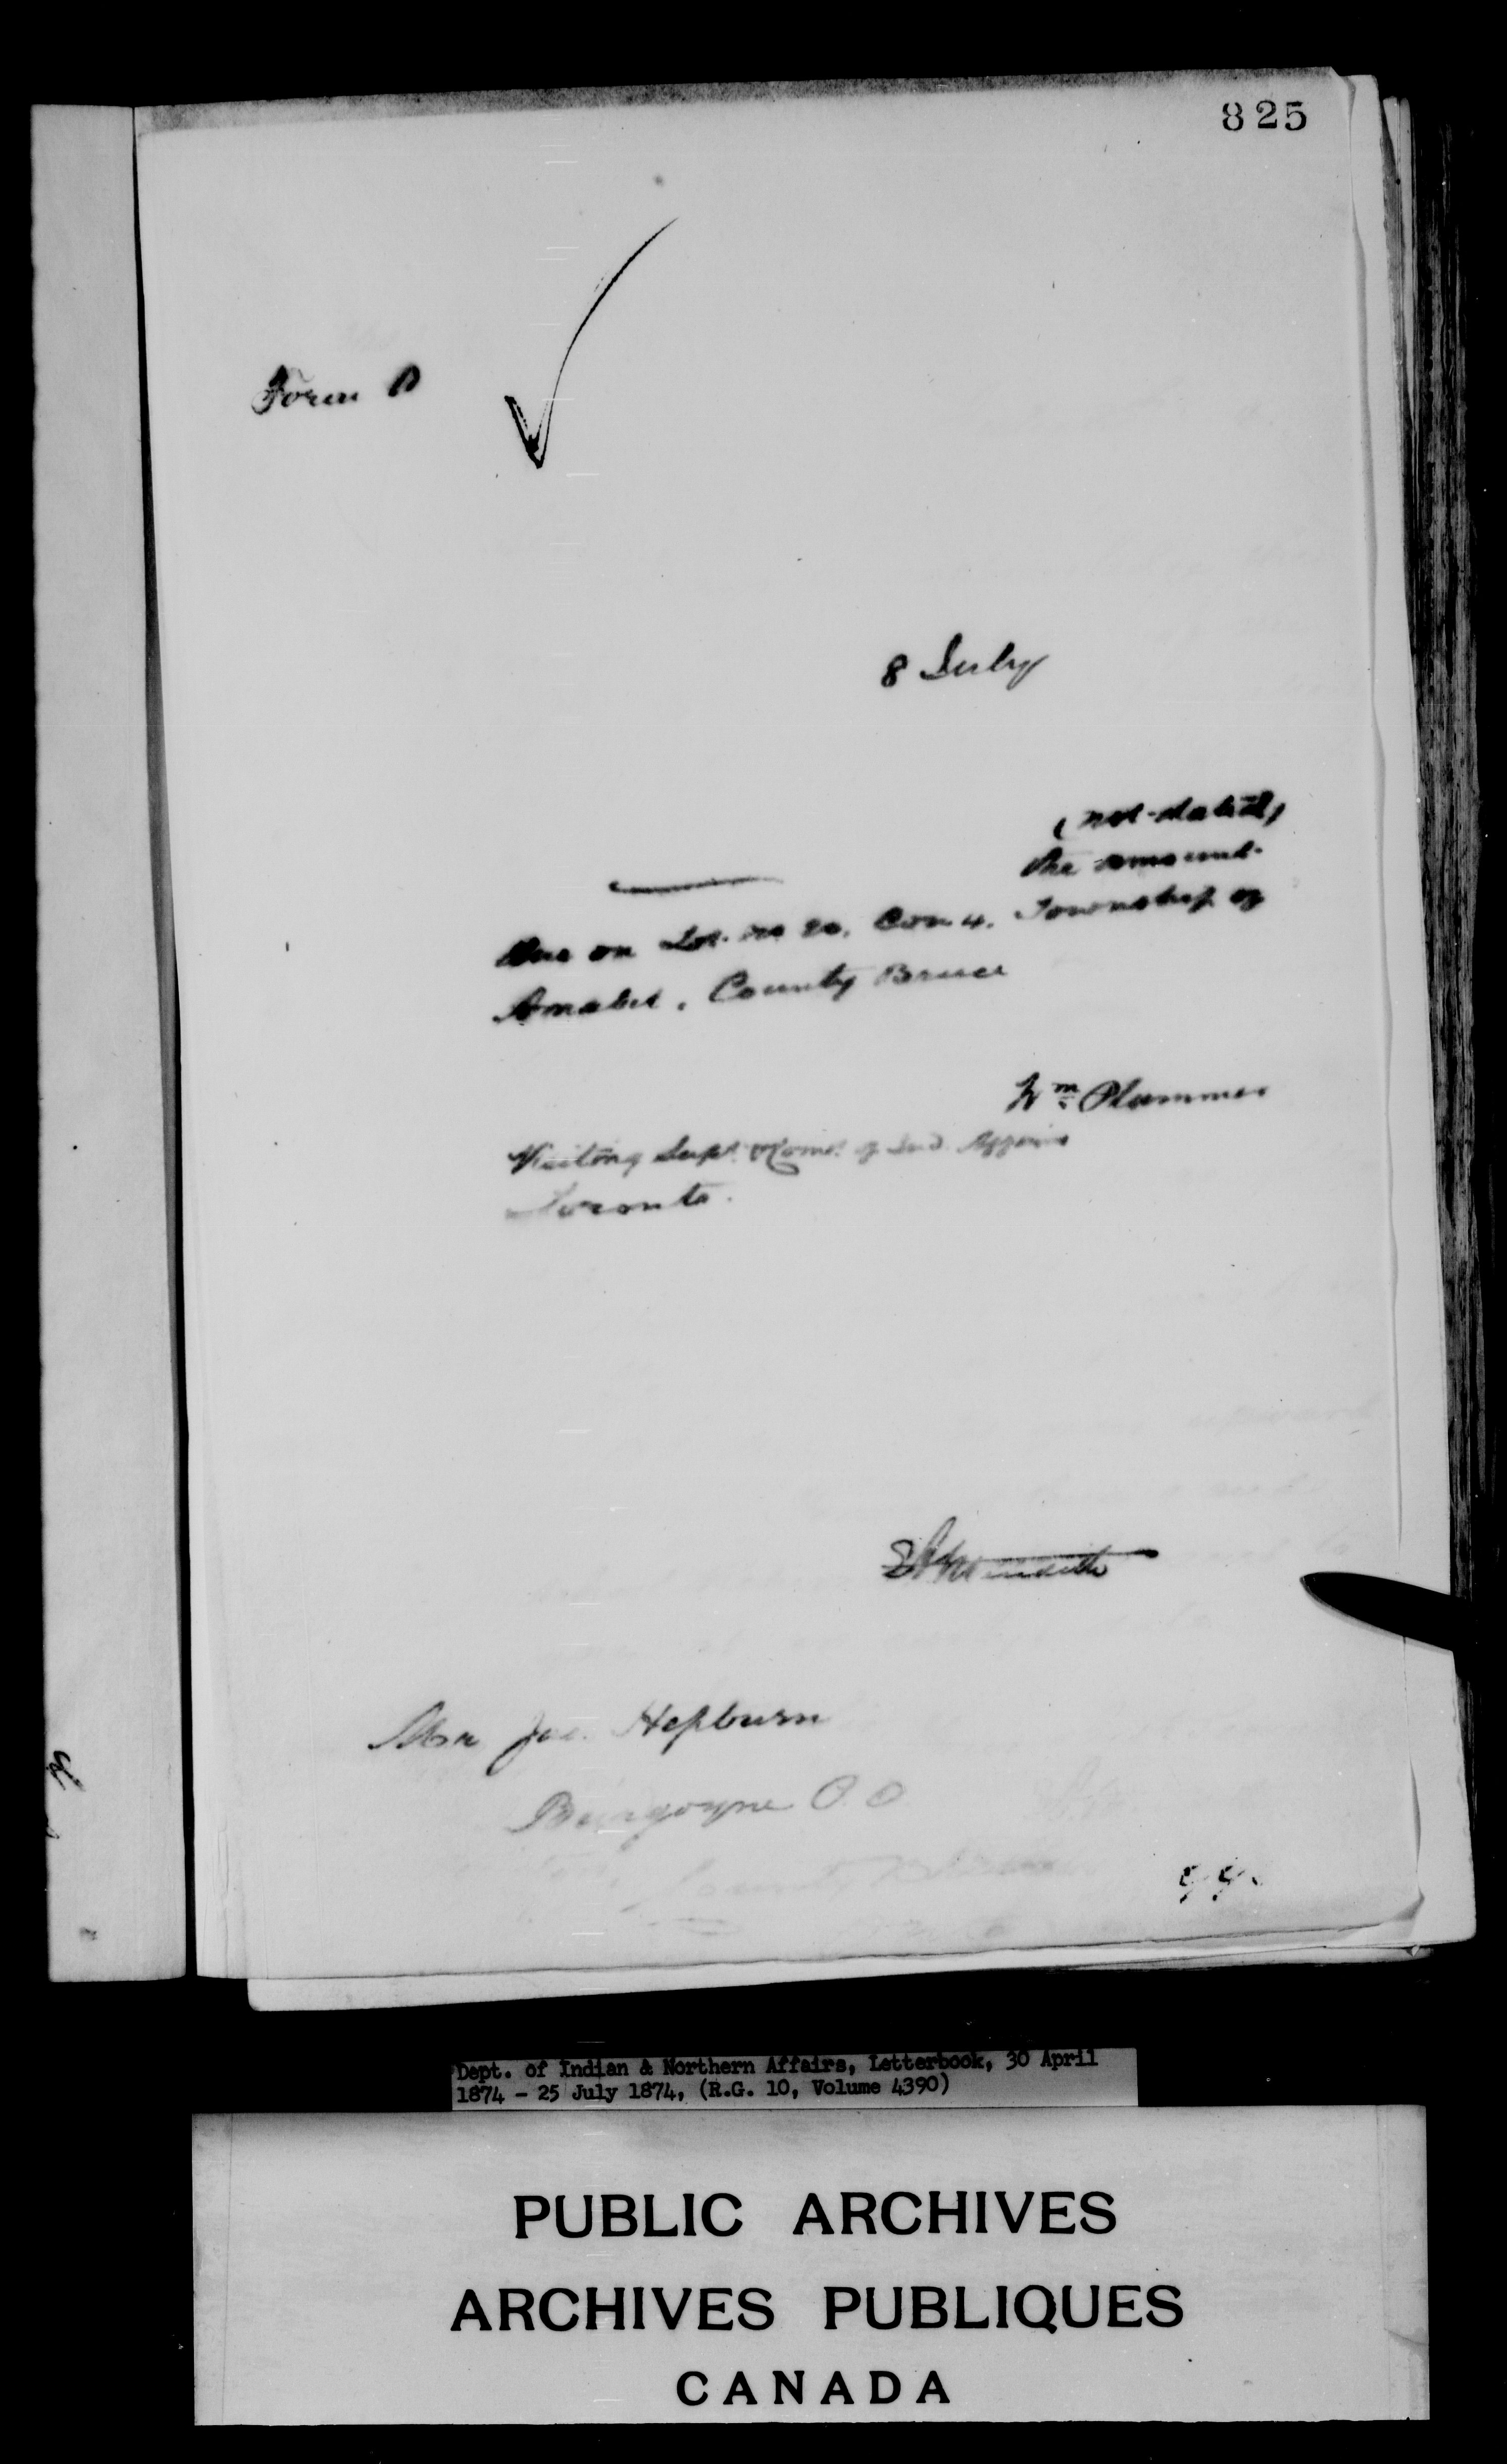 825
Form B
8 July
(not dated)
the amount
due on Lot No 20, Con 4, Township of
Amabel, County Bruce
Wm Plummer
Visiting Supt. & Comr. of Ind. Affairs
Toronto.
Mr Jas. Hepburn
Burgoyne P.O
County Bruce
Dept. of Indian & Northern Affairs, Letterbook, 30 April
1874 - 25 July 1874, (R.G. 10, Volume 4390)
PUBLIC ARCHIVES
ARCHIVES PUBLIQUES
CANADA